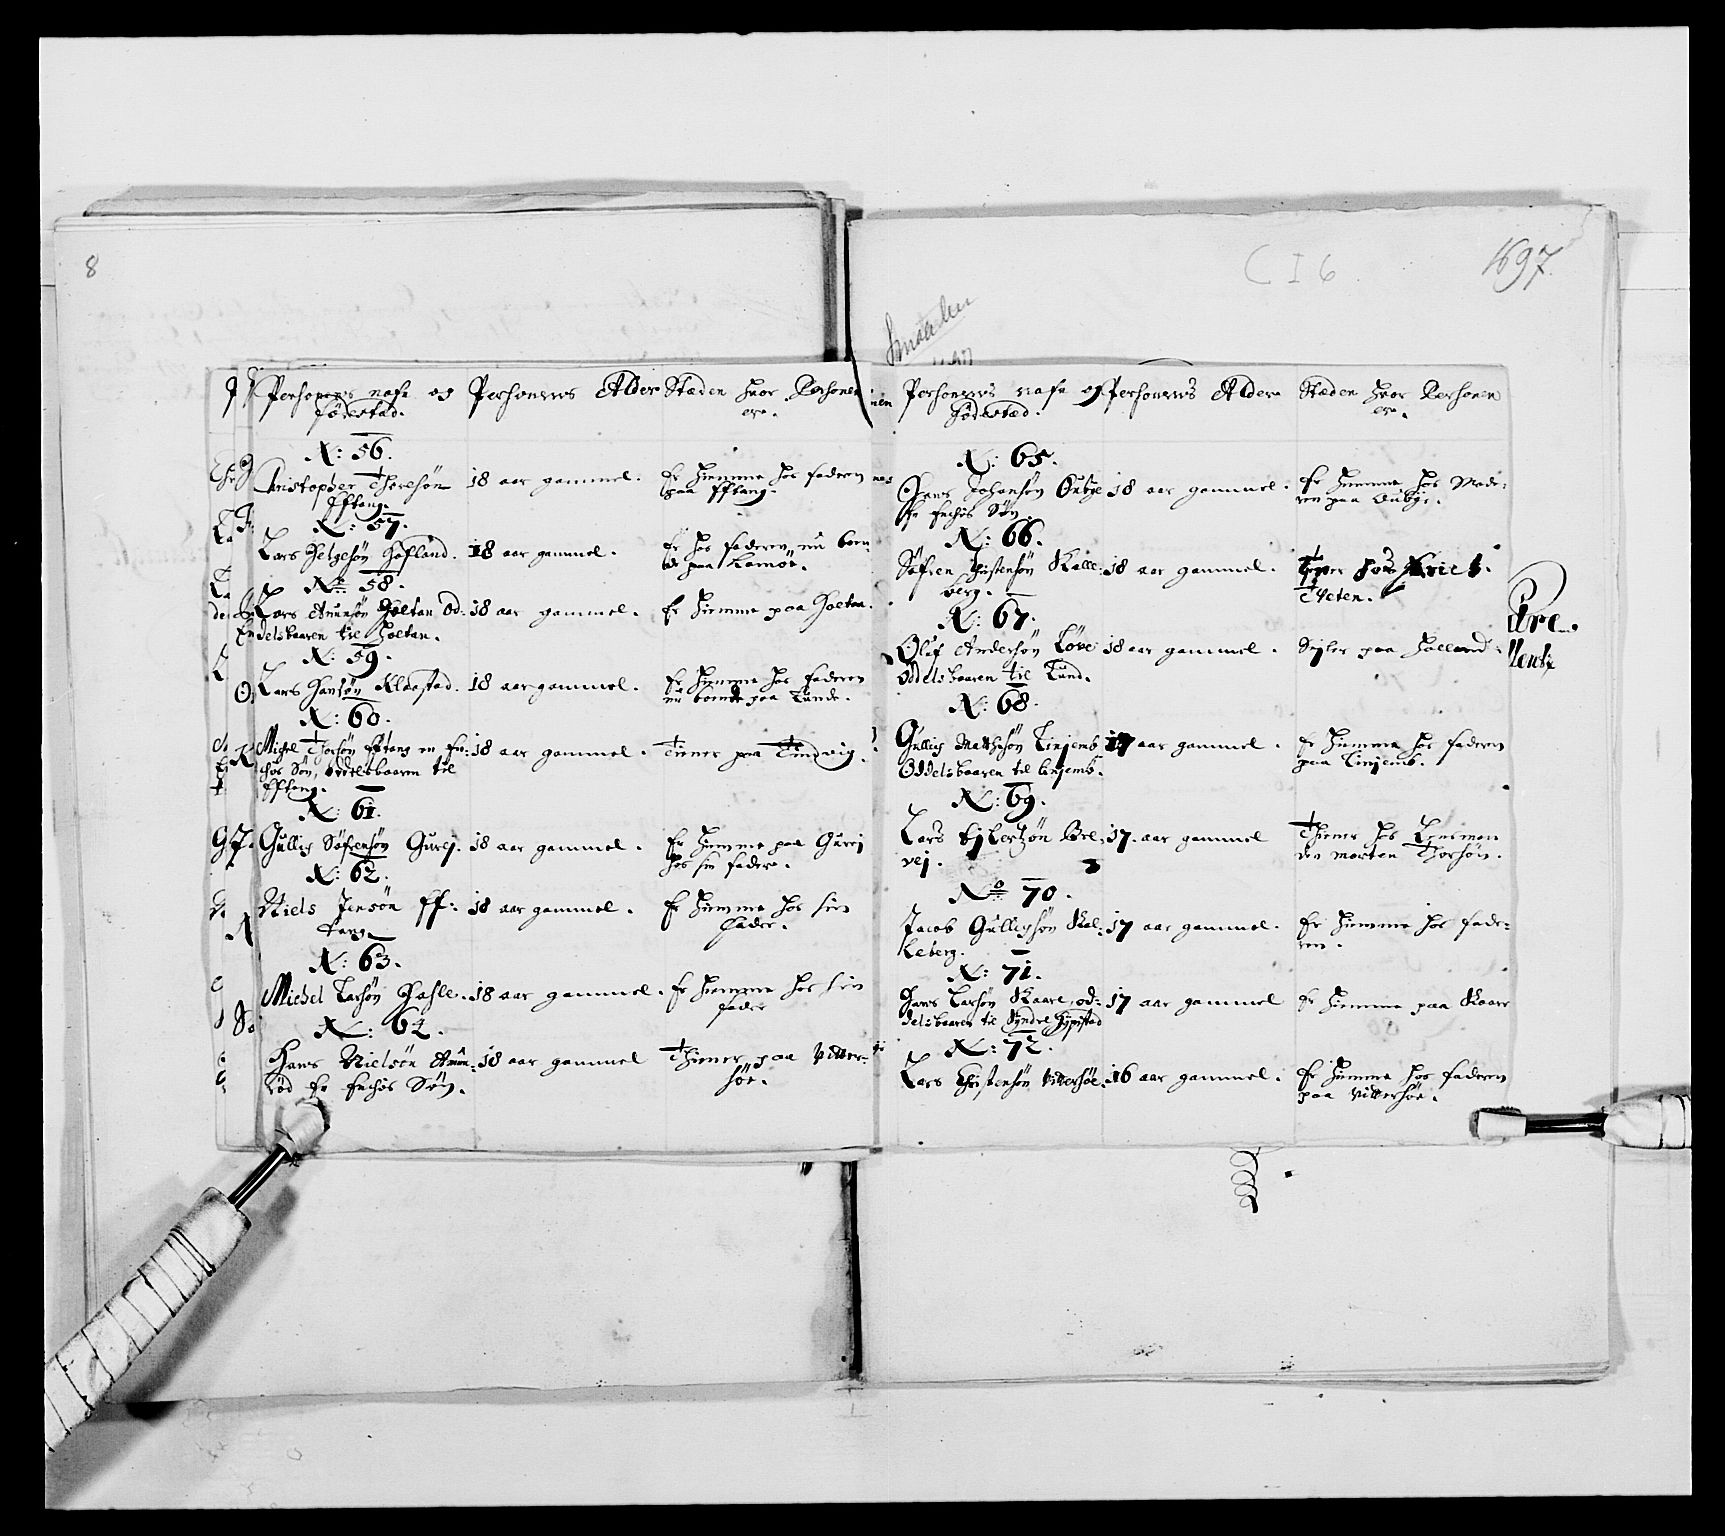 8
C I 6
1697
Personens nafn og
födestad.
Personens Alder
Stæden hvor Personen
er.
N: 56.
Christopher Thoresön
Efftang.
18 aar gammel.
Er hiemme hos faderen
paa Efftang.
N: 57.
Lars Helgesön Hafland.
18 aar gammel.
Er hos faderen, nu boen-
de paa Ramöe.
No 58.
Lars Amunsön Holtan Od-
delsbaaren til Holtan.
18 aar gammel.
Er hiemme paa Holtan.
N: 59.
Lars Hansön Klaastad.
18 aar gammel.
Er hiemme hos faderen
nu boende paa Lunde.
N: 60.
Michel Thorsön Efftang en En-
chos Sön, oddelsbaaren til
Efftang.
18 aar gammel.
Tiener paa Tindvig.
N: 61.
Gullig Söfrensön Gurej.
18 aar gammel.
Er hiemme paa Gurej
hos sin fader.
N: 62.
Niels Jensön Eff-
tang
18 aar gammel.
Er hiemme hos sin
fader.
N: 63.
Michel Larsön Hasle.
18 aar gammel.
Er hiemme hos sin
fader
N: 64.
Hans Nielsön Amun-
röd Er Enchis Sön.
18 aar gammel
Thiener paa Vitter-
söe.
Personens nafn og
födestæd.
Personens Alder
Stæden hvor Personen
er.
N: 65.
Hans Johansön Oubye
Er Enchis Sön.
18 aar gammel.
Er hiemme hos Mode-
ren paa Oubye.
N: 66.
Söfren Christensön Kalle-
berg.
18 aar gammel.
Tveten.
N: 67.
Oluf Andersön Löve
oddelsbaaren til Lund.
18 aar gammel.
Sejler paa Holland
N: 68.
Gullig Matthisön Linjemb
Oddelsbaaren til Linjemb.
17 aar gammel.
Er hiemme hos faderen
paa Linjemb.
N: 69.
Lars Ejlertzön Bre-
vej.
17. aar gammel
Thiener hos Lensman-
den Morten Thorsön.
No 70.
Jacob Gulligsön Kal-
leberg.
17 aar gammel.
Er hiemme hos fade-
ren.
N: 71.
Hans Larsön Kaare, od-
delsbaaren til Syndre
17 aar gammel
Er hiemme paa Kaare
N: 72.
Lars Christensön Vittersöe.
16 aar gammel.
Er hiemme hos faderen
paa Vittersöe.